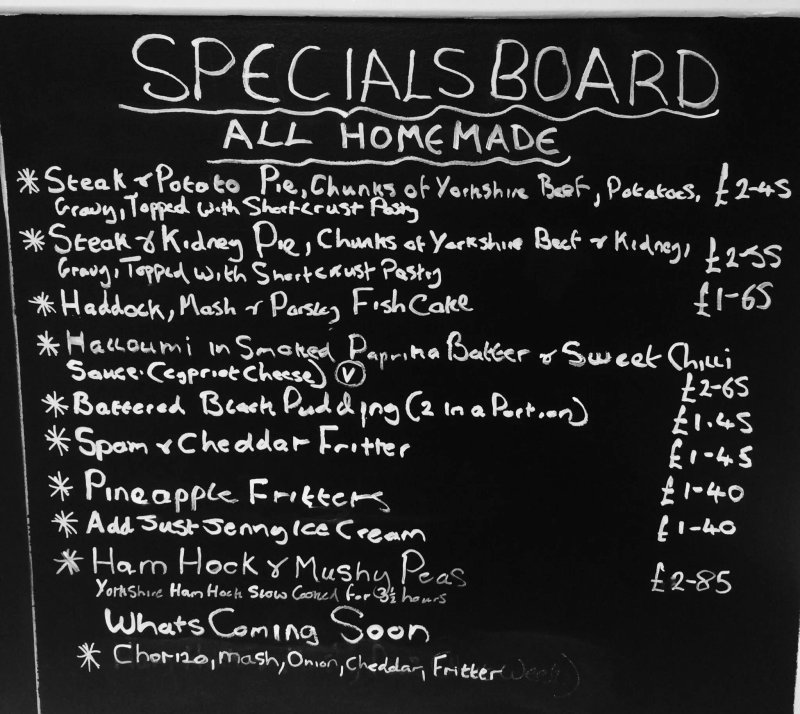 SPECIALS BOARD
ALL HOMEMADE
* Steak & Pototo Pie, Chunks of Yorkshire Beef, Potatoes, £2-45
Gravy, Topped with Shortcrust Pasty
* Steak & Kidney Pie, Chunks of Yorkshire Beef & Kidney, £2-55
Gravy, Topped with Shortcrust Pastry
* Haddock, Mash & Parsley Fish Cake £1-65
* Halloumi in Smoked Paprika Batter & Sweet Chilli
Sauce. (Cypriot Cheese) V £2-65
* Battered Black Pudding (2 in a Portion) £1.45
* Spam & Cheddar Fritter £1-45
* Pineapple Fritters £1-40
* Add Just Jenny Ice Cream £1-40
* Ham Hock & Mushy Peas £2-85
Yorkshire Ham Hock Slow Cooked for 3½ hours
Whats Coming Soon
* Chorizo, mash, Onion, Cheddar, Fritter